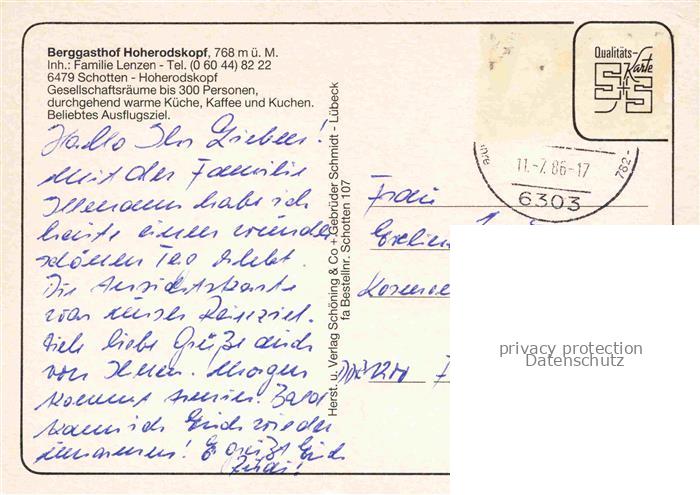 Berggasthof Hoherodskopf, 768 m ü. M.
Inh.: Familie Lenzen - Tel. (0 60 44) 82 22
6479 Schotten - Hoherodskopf
Gesellschaftsräume bis 300 Personen,
durchgehend warme Küche, Kaffee und Kuchen.
Beliebtes Ausflugsziel.
Hallo Ihr Lieben!
Mit der Familie
habe ich
heute einen wunder
schönen Tag erlebt.
Die Ansichtskarte
von unser Reiseziel.
Viele liebe Grüße auch
von Ihnen. Morgen
kommt Armin. Bald
kann ich Euch wieder
umarmen! Es grüßt Euch
Herst. u. Verlag Schöning & Co + Gebrüder Schmidt - Lübeck
fa Bestellnr. Schotten 107
Qualitäts-
Karte
S+S
11.-7.86-17
782-
6303
Frau
privacy protection
Datenschutz